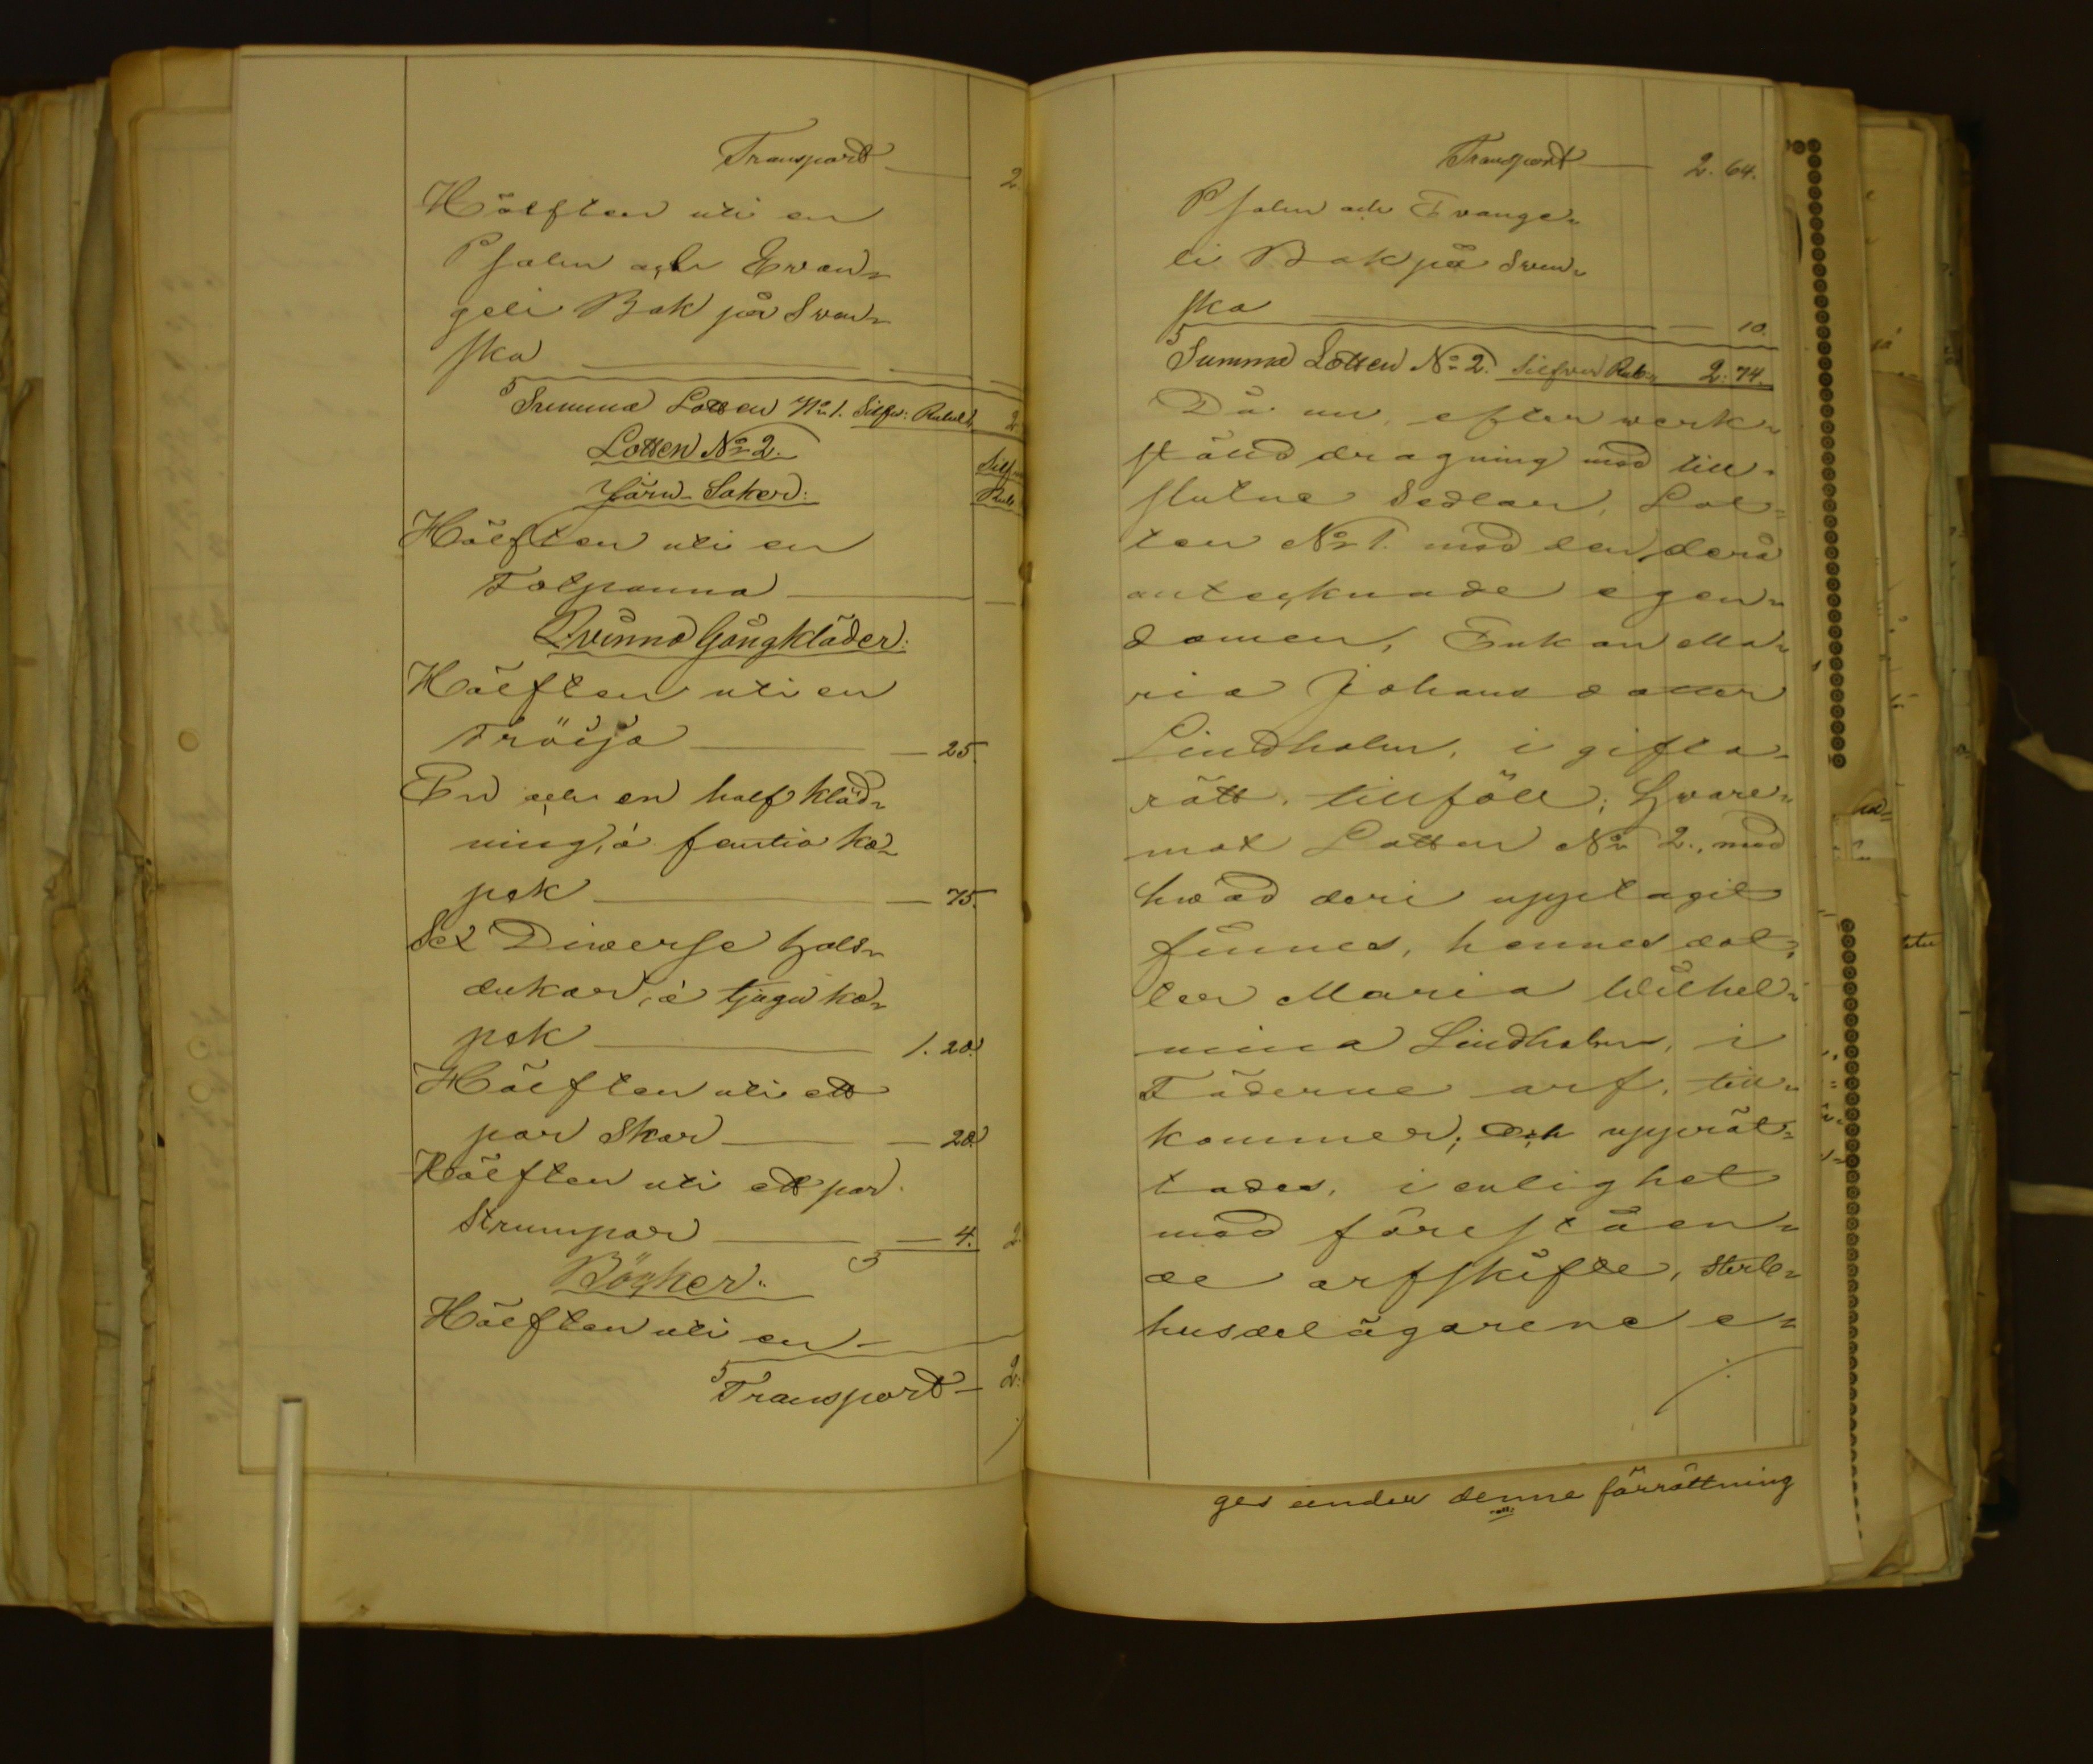 Transport — 2.
Hälften uti en
Psalm och Evan=
geli Bok på Sven=
ska
Summa Lotten No 1. Silfv: Rubel 2
Lotten No 2.
Silf
Järn-Saker:
Rub
Hälften uti en
Fotpanna
Qvinno Gångkläder:
Hälften uti en
Tröija — 25.
En och en half kläd=
ning, à femtio ko=
pek — 75.
Sex Diverse hals=
dukar, à tjugu ko=
pek — 1. 20.
Hälften uti ett
par Skor — 20.
Hälften uti ett par
Strumpor — 4. 2
Böcker:
Hälften uti en —
Transport — 2.
Transport — 2. 64.
Psalm och Evange=
li Bok på Sven=
ska — 10.
Summa Lotten No 2. Silfver Rub: 2. 74.
Då nu, efter werk=
ställd dragning med till=
slutne Sedlar, Lot=
ten No 1. med den derå
antecknade egen=
domen, Enkan Ma=
ria Johansdotter
Lindholm, i gifto=
rätt, tillföll; hvare=
mot Lotten No 2., med
hwad deri upptagit
finnes, hennes dot=
ter Maria Wilhel=
mina Lindholm, i
Fäderne arf, till=
kommer; Och upprät=
tades, i enlighet
med föreståen=
de arfskifte, sterb=
husdelägarene e=
ges under denne förrättning